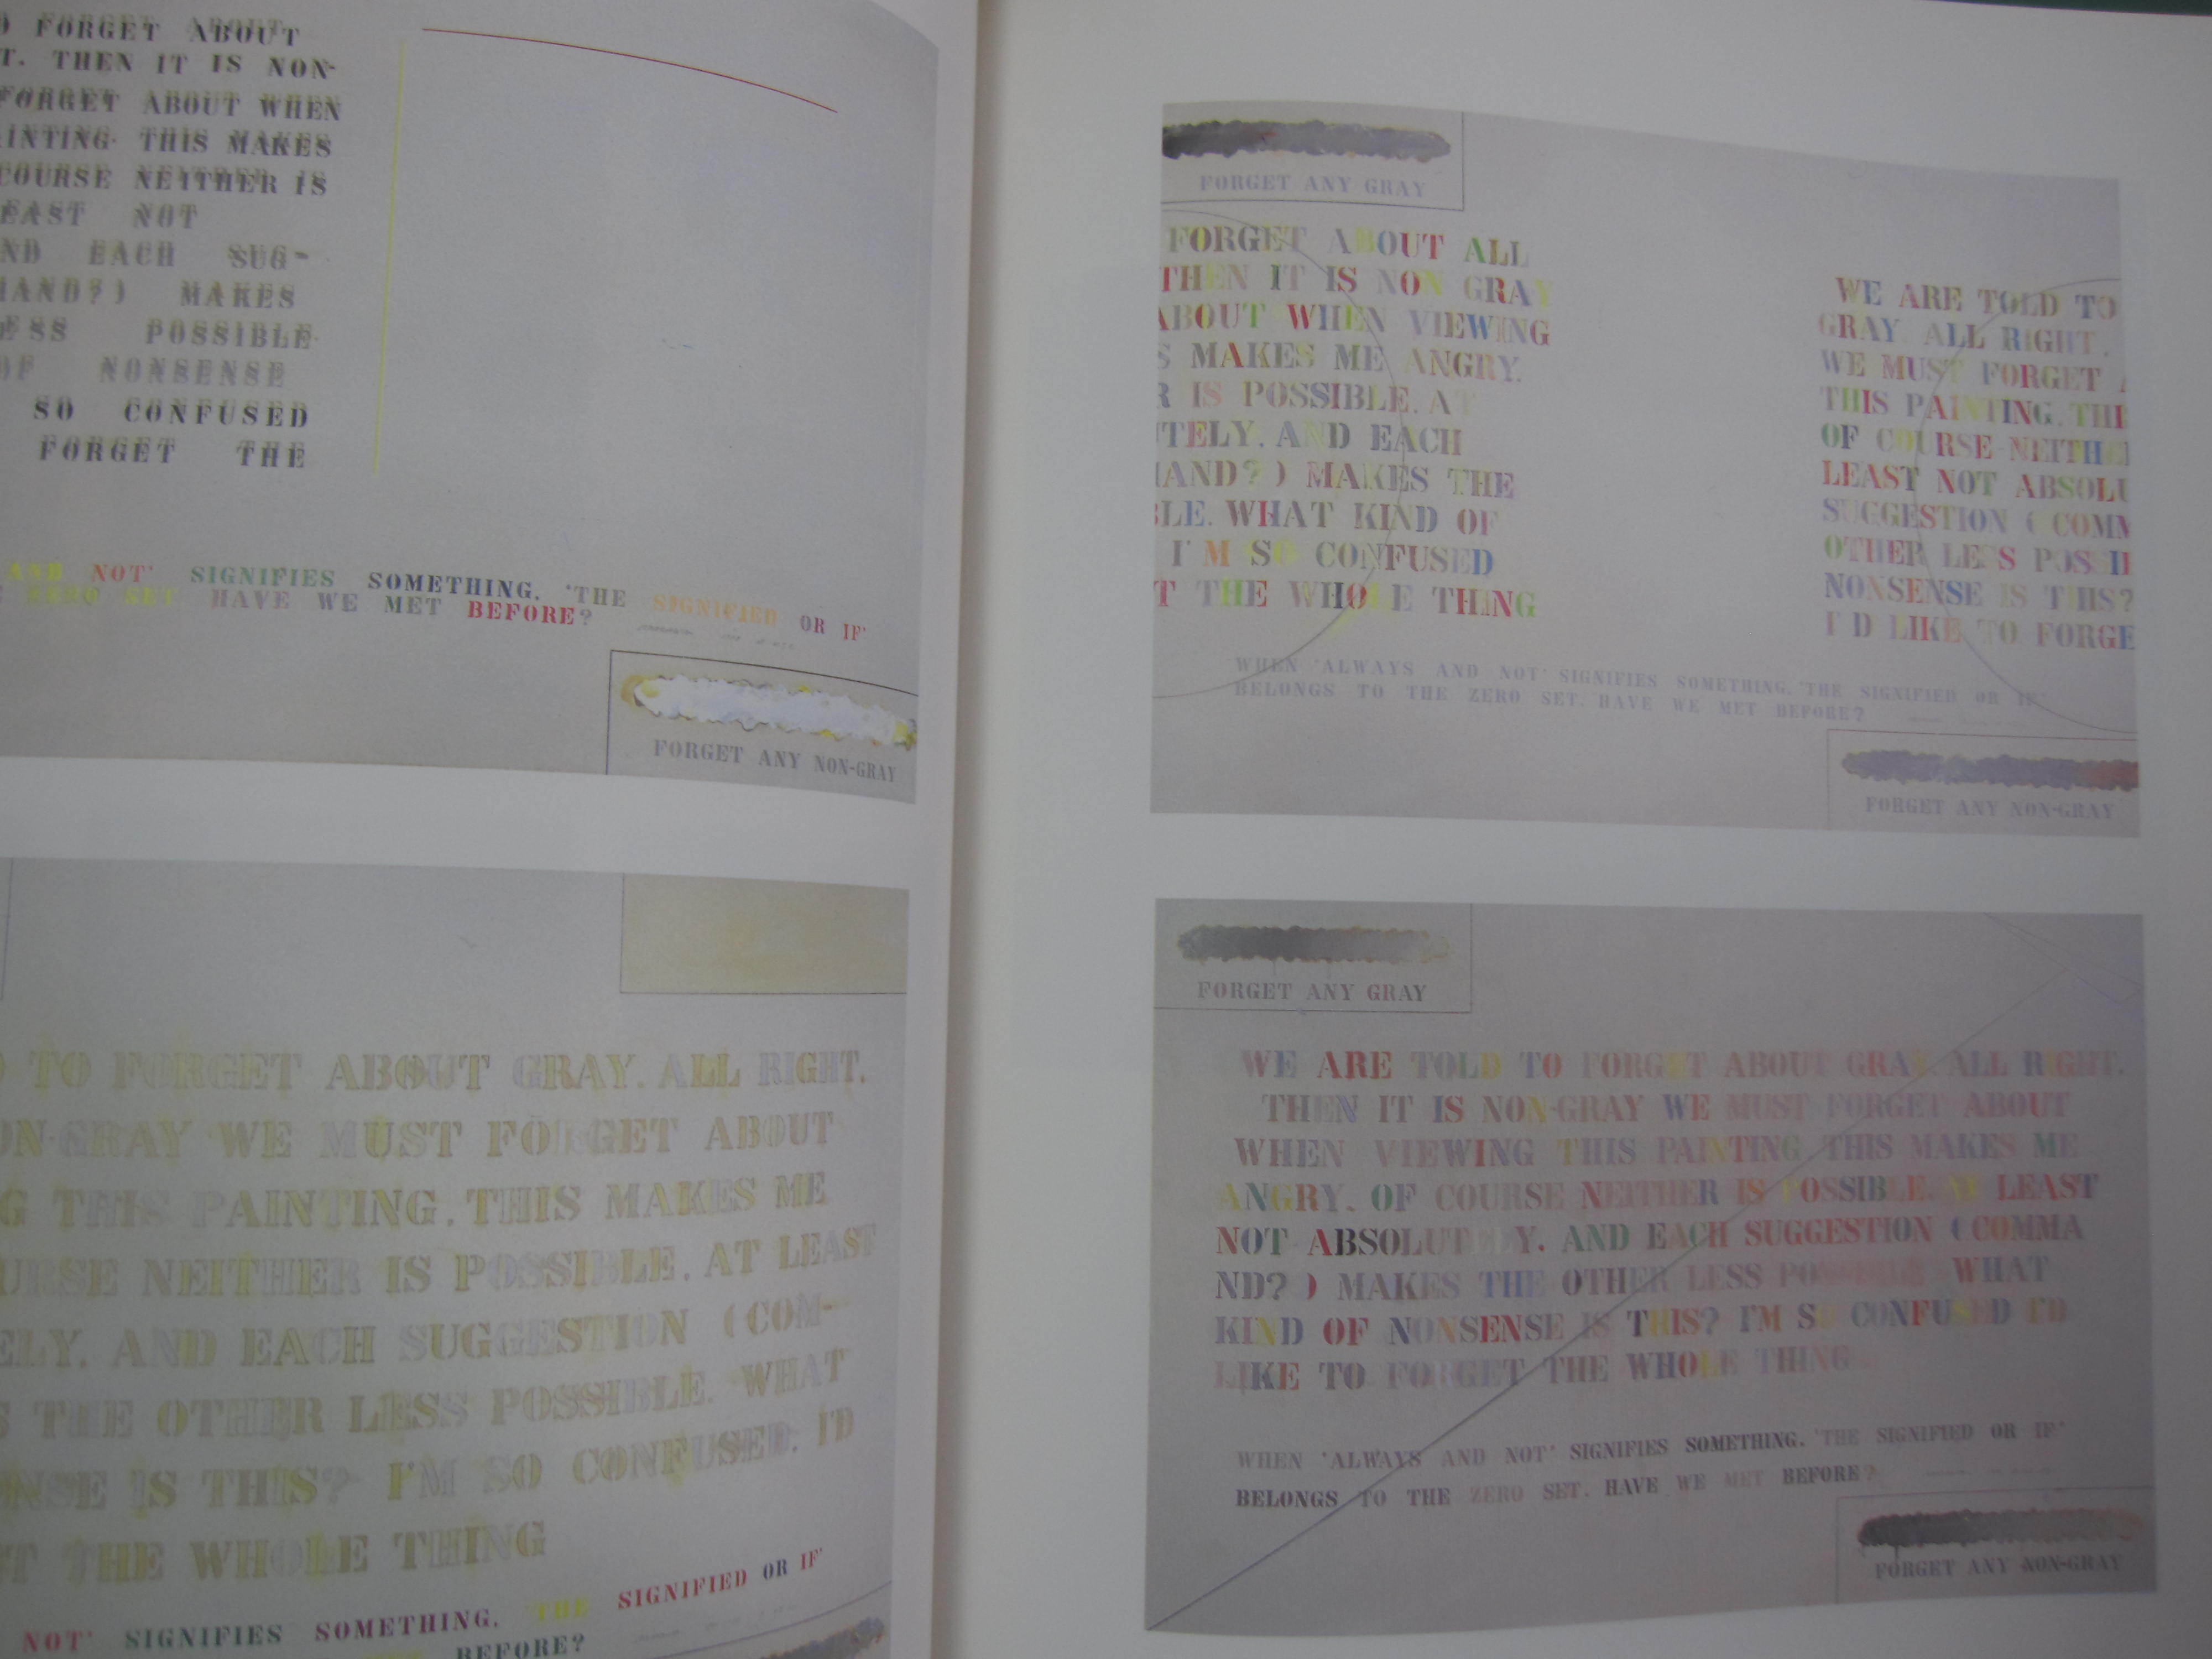 FORGET ABOUT
THEN IT IS NON-
FORGET ABOUT WHEN
THIS MAKES
COURSE NEITHER IS
EAST NOT
EACH SUG-
HAND?) MAKES
ESS POSSIBLE
OF NONSENSE
SO CONFUSED
FORGET THE
AND NOT' SIGNIFIES SOMETHING, 'THE SIGNIFIED OR IF'
ZERO SET HAVE WE MET BEFORE?
FORGET ANY NON-GRAY
TO FORGET ABOUT GRAY. ALL RIGHT.
ON-GRAY WE MUST FORGET ABOUT
G THIS PAINTING. THIS MAKES ME
URSE NEITHER IS POSSIBLE. AT LEAST
ELY. AND EACH SUGGESTION (COM-
S THE OTHER LESS POSSIBLE. WHAT
NSE IS THIS? I'M SO CONFUSED. I'D
T THE WHOLE THING
NOT' SIGNIFIES SOMETHING, THE SIGNIFIED OR IF'
BEFORE?
FORGET ANY GRAY
FORGET ABOUT ALL
THEN IT IS NON GRAY
ABOUT WHEN VIEWING
S MAKES ME ANGRY.
R IS POSSIBLE. AT
TELY. AND EACH
HAND?) MAKES THE
BLE. WHAT KIND OF
I'M SO CONFUSED
T THE WHOLE THING
WE ARE TOLD TO
GRAY ALL RIGHT.
WE MUST FORGET A
THIS PAINTING. THI
OF COURSE NEITHE
LEAST NOT ABSOLU
SUGGESTION (COMM
OTHER LESS POSSI
NONSENSE IS THIS?
I'D LIKE TO FORGE
WHEN 'ALWAYS AND NOT' SIGNIFIES SOMETHING, 'THE SIGNIFIED OR IF'
BELONGS TO THE ZERO SET. HAVE WE MET BEFORE?
FORGET ANY NON-GRAY
FORGET ANY GRAY
WE ARE TOLD TO FORGET ABOUT GRAY ALL RIGHT.
THEN IT IS NON-GRAY WE MUST FORGET ABOUT
WHEN VIEWING THIS PAINTING THIS MAKES ME
ANGRY. OF COURSE NEITHER IS POSSIBLE. AT LEAST
NOT ABSOLUTELY. AND EACH SUGGESTION (COMMA
ND?) MAKES THE OTHER LESS POSSIBLE WHAT
KIND OF NONSENSE IS THIS? I'M SO CONFUSED I'D
LIKE TO FORGET THE WHOLE THING
WHEN 'ALWAYS AND NOT' SIGNIFIES SOMETHING, 'THE SIGNIFIED OR IF'
BELONGS TO THE ZERO SET. HAVE WE MET BEFORE?
FORGET ANY NON-GRAY